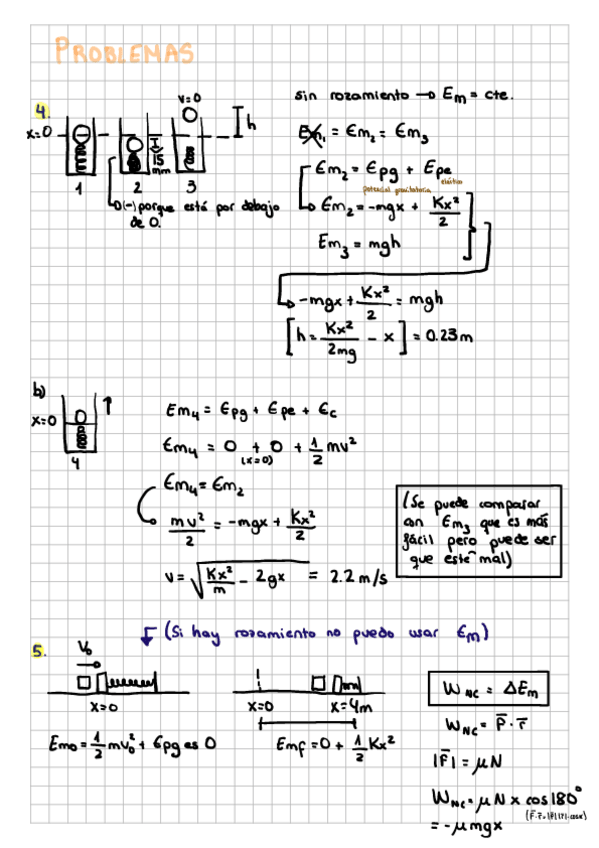 PROBLEMAS
4.
v=0
x=0
h
15 mm
1 2 3
(-) porque está por debajo
de 0.
sin rozamiento → Em = cte.
= Em₂ = Em₃
Em₂ = Epg + Epe
potencial gravitatoria elástica
Em₂ = -mgx + Kx²/2
Em₃ = mgh
-mgx + Kx²/2 = mgh
[h = Kx²/2mg - x] = 0.23m
b)
x=0
4
Em₄ = Epg + Epe + Ec
Em₄ = 0 + 0 + 1/2 mv²
(x=0)
Em₄ = Em₂
mv²/2 = -mgx + Kx²/2
v = √(Kx²/m - 2gx) = 2.2 m/s
(Se puede comparar
an Em₃ que es más
fácil pero puede ser
que esté mal)
(Si hay rozamiento no puedo usar Em)
5.
V₀
x=0
x=0 x=4m
Em₀ = 1/2 mv₀² + Epg es 0
Emf = 0 + 1/2 Kx²
W NC = ΔEm
W NC = F̄ · r̄
|F̄| = μN
W NC = μN x cos180°
(F̄·r̄=|F̄||r̄|·cosα)
= -μmgx